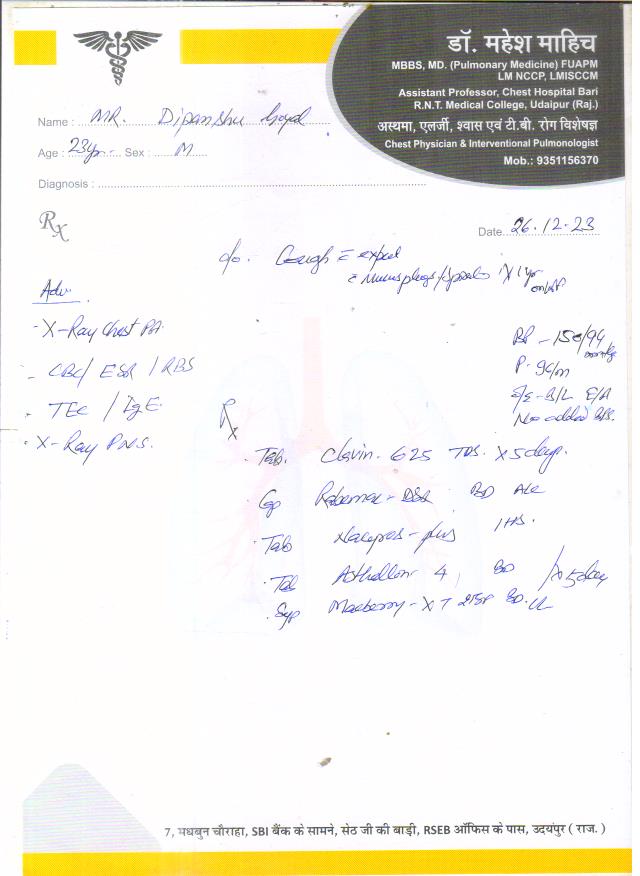 डॉ. महेश माहिच
MBBS, MD. (Pulmonary Medicine) FUAPM
LM NCCP, LMISCCM
Assistant Professor, Chest Hospital Bari
R.N.T. Medical College, Udaipur (Raj.)
अस्थमा, एलर्जी, श्वास एवं टी.बी. रोग विशेषज्ञ
Chest Physician & Interventional Pulmonologist
Mob.: 9351156370
Name : MR. Dipanshu Goyal
Age : 23yr Sex : M
Diagnosis :
Rx
Date. 26.12.23
c/o. Cough c expect
c Mucusplugs / x 1yr
Adv.
- X-Ray Chest PA
- CBC / ESR / RBS
- TEC / IgE
- X-Ray PNS.
BP - 150/94 mmHg
P-
No added
Rx
Tab. Clavin. 625 TDS. x 5 days.
Cap DSR BD
Tab - plus 1 HS.
Tab 4, BD / x 5 day
Syp - X BD
7, मधबुन चौराहा, SBI बैंक के सामने, सेठ जी की बाड़ी, RSEB ऑफिस के पास, उदयपुर ( राज. )